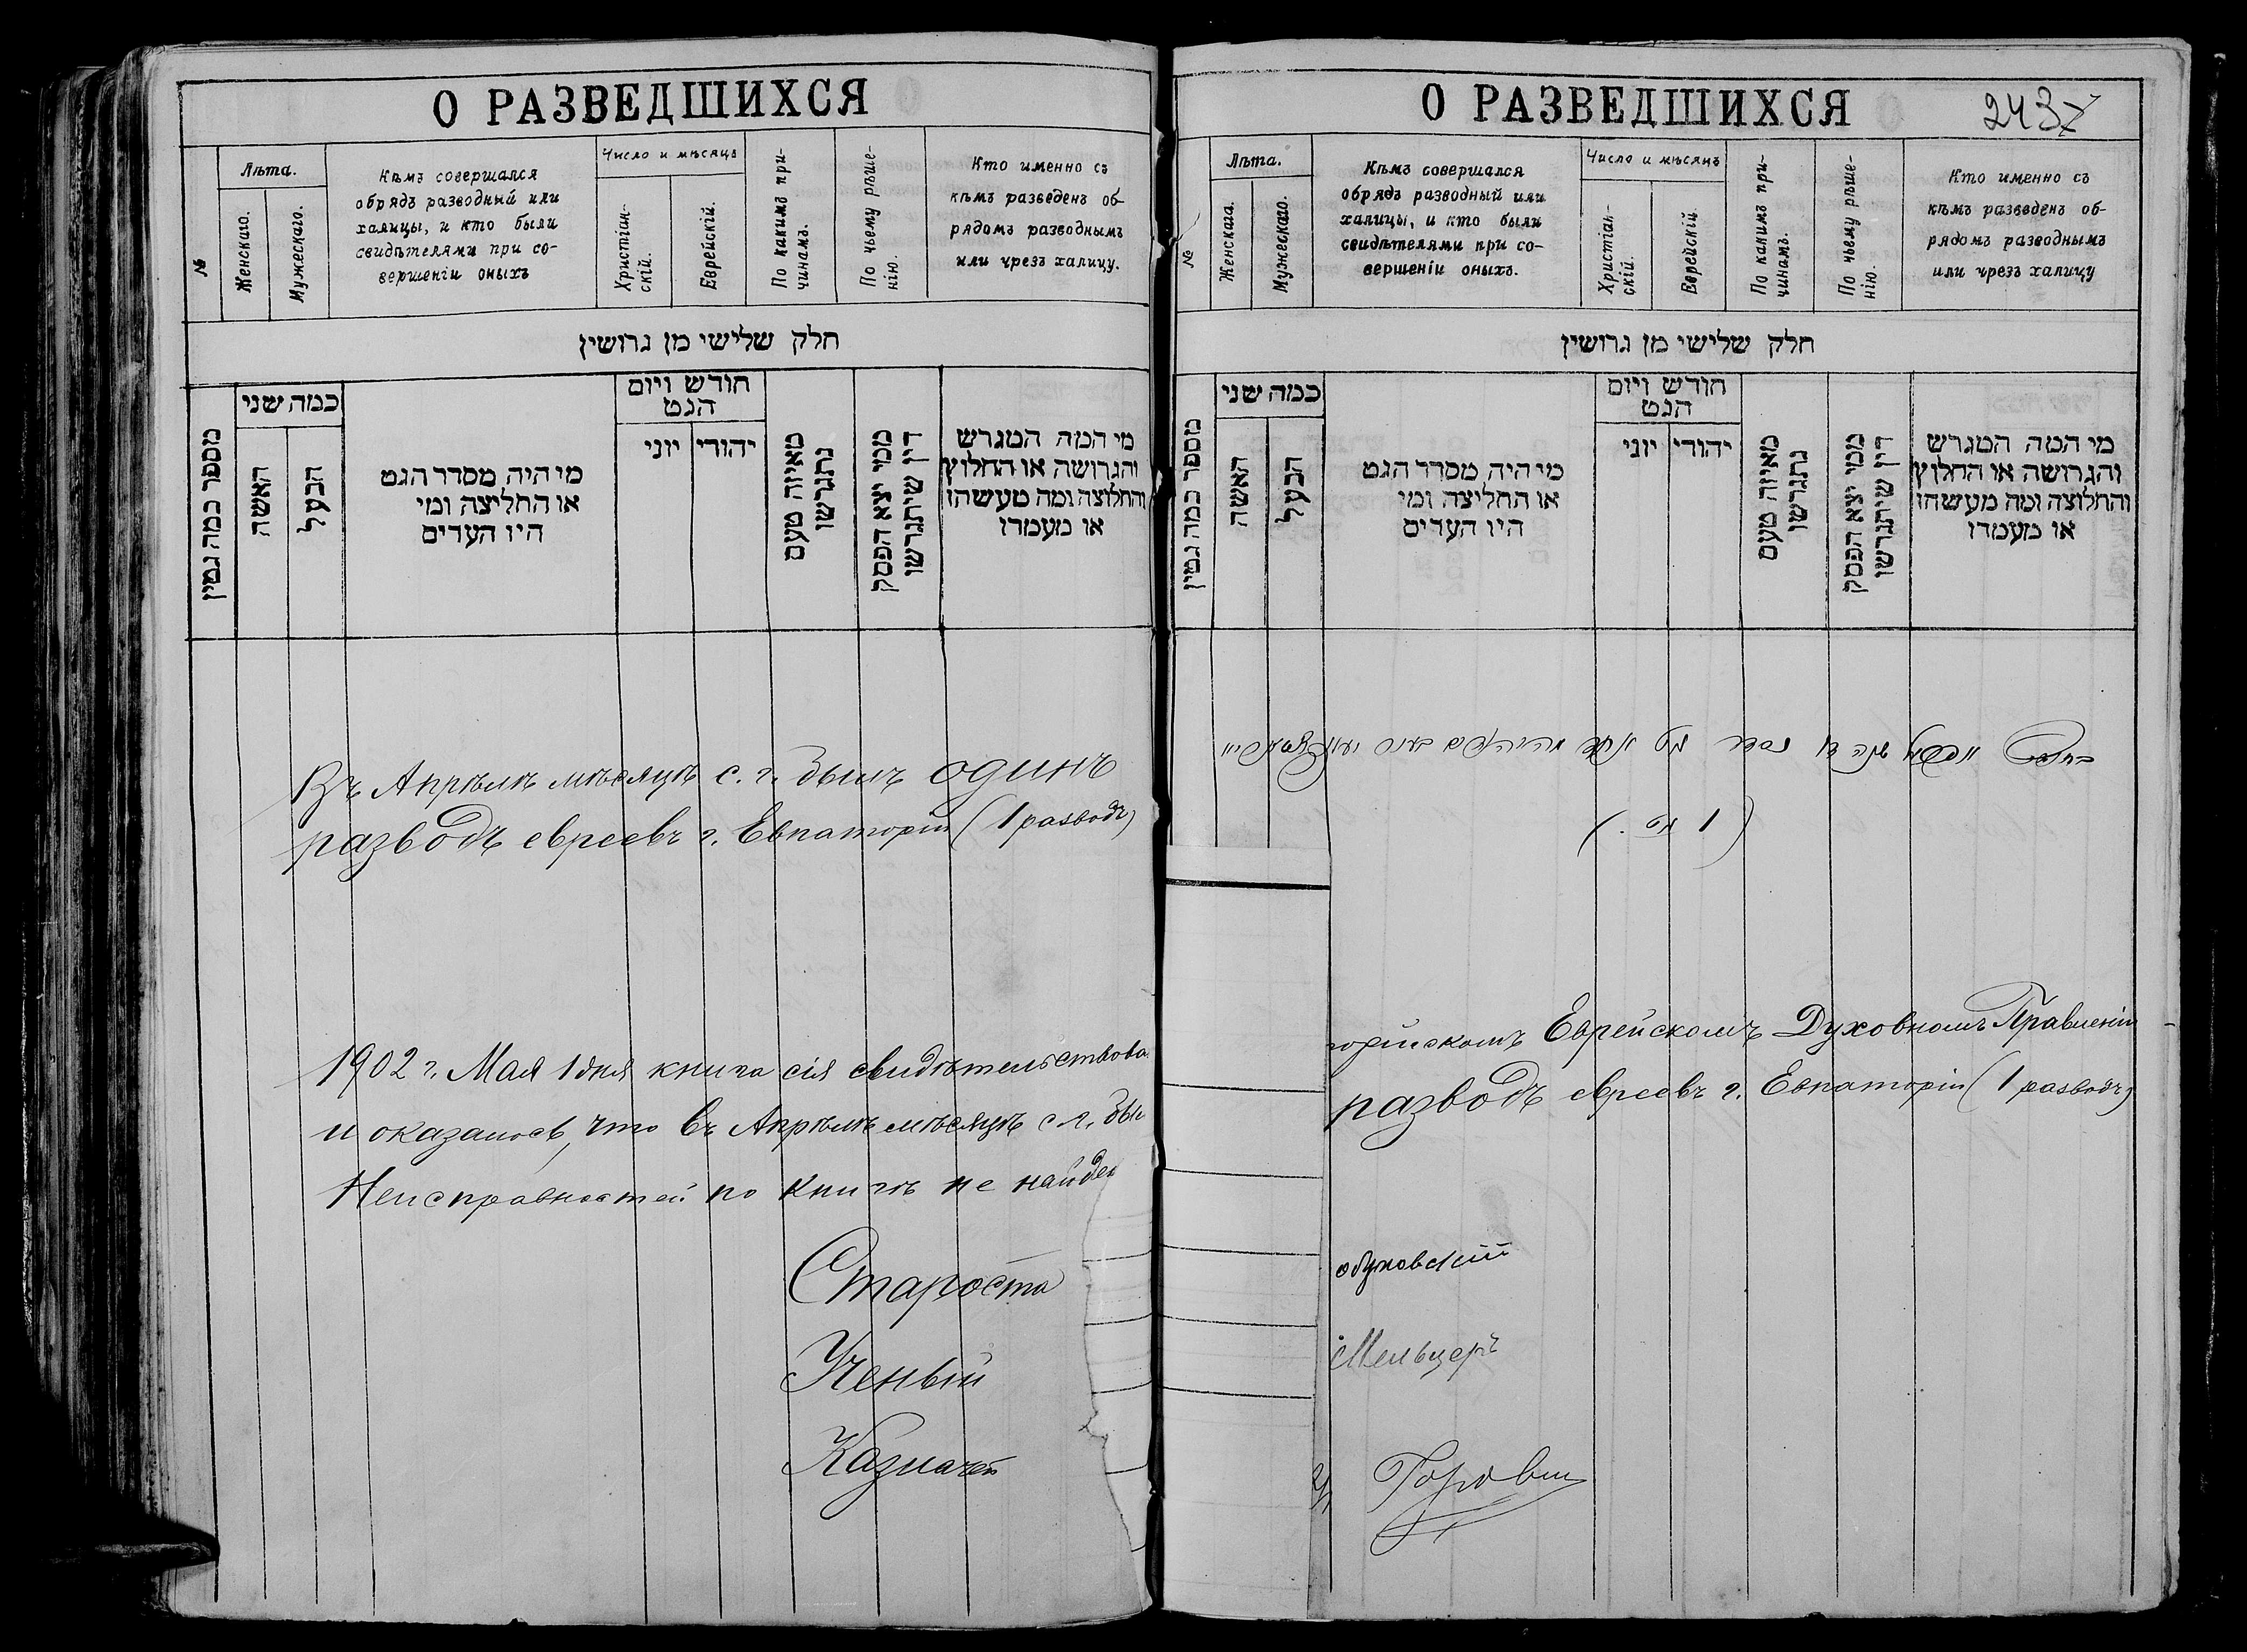 О РАЗВЕДШИХСЯ
№
Лѣта.
Женскаго.
Мужескаго.
Кѣмъ совершался
обрядъ разводный или
халицы, и кто были
свидѣтелями при со-
вершеніи оныхъ
Число и мѣсяцъ
Христіан-
скій.
Еврейскій.
По какимъ при-
чинамъ.
По чьему рѣше-
нію.
Кто именно съ
кѣмъ разведенъ об-
рядомъ разводнымъ
или чрезъ халицу.
חלק שלישי מן גרושין
מספר כמה גטין
כמה שני
האשה
הבעל
מי היה מסדר הגט
או החליצה ומי
היו העדים
חודש ויום
הגט
יוני
יהודי
מאיזה טעם
נתגרשו
ממי יצא הפסק
דין שיתגרשו
מי המה המגרש
והגרושה או החלוץ
והחלוצה ומה מעשהו
או מעמדו
Въ Апрѣлѣ мѣсяцѣ с. г. былъ одинъ
разводъ евреевъ г. Евпаторіи (1 разводъ)
1902 г. Мая 1 дня книга сія свидѣтельствова
и оказалось, что въ Апрѣлѣ мѣсяцѣ с. г. бы
Неисправностей по книгѣ не найде
Староста
Ученый
Казначей
О РАЗВЕДШИХСЯ
243
№
Лѣта.
Женскаго.
Мужескаго.
Кѣмъ совершался
обрядъ разводный или
халицы, и кто были
свидѣтелями при со-
вершеніи оныхъ.
Число и мѣсяцъ
Христіан-
скій.
Еврейскій.
По какимъ при-
чинамъ.
По чьему рѣше-
нію.
Кто именно съ
кѣмъ разведенъ об-
рядомъ разводнымъ
или чрезъ халицу
חלק שלישי מן גרושין
מספר כמה גטין
כמה שני
האשה
הבעל
מי היה מסדר הגט
או החליצה ומי
היו העדים
חודש ויום
הגט
יוני
יהודי
מאיזה טעם
נתגרשו
ממי יצא הפסק
דין שיתגרשו
מי המה המגרש
והגרושה או החלוץ
והחלוצה ומה מעשהו
או מעמדו
торійскомъ Еврейскомъ Духовномъ Правленіи
разводъ евреевъ г. Евпаторіи (1 разводъ)
Мельцеръ